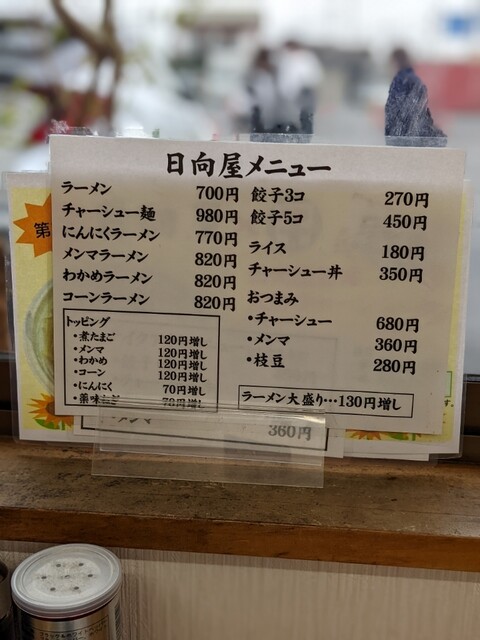 日向屋メニュー
ラーメン 700円
チャーシュー麺 980円
にんにくラーメン 770円
メンマラーメン 820円
わかめラーメン 820円
コーンラーメン 820円
トッピング
・煮たまご 120円増し
・メンマ 120円増し
・わかめ 120円増し
・コーン 120円増し
・にんにく 70円増し
・薬味ねぎ 70円増し
餃子3コ 270円
餃子5コ 450円
ライス 180円
チャーシュー丼 350円
おつまみ
・チャーシュー 680円
・メンマ 360円
・枝豆 280円
ラーメン大盛り…130円増し
第
360円